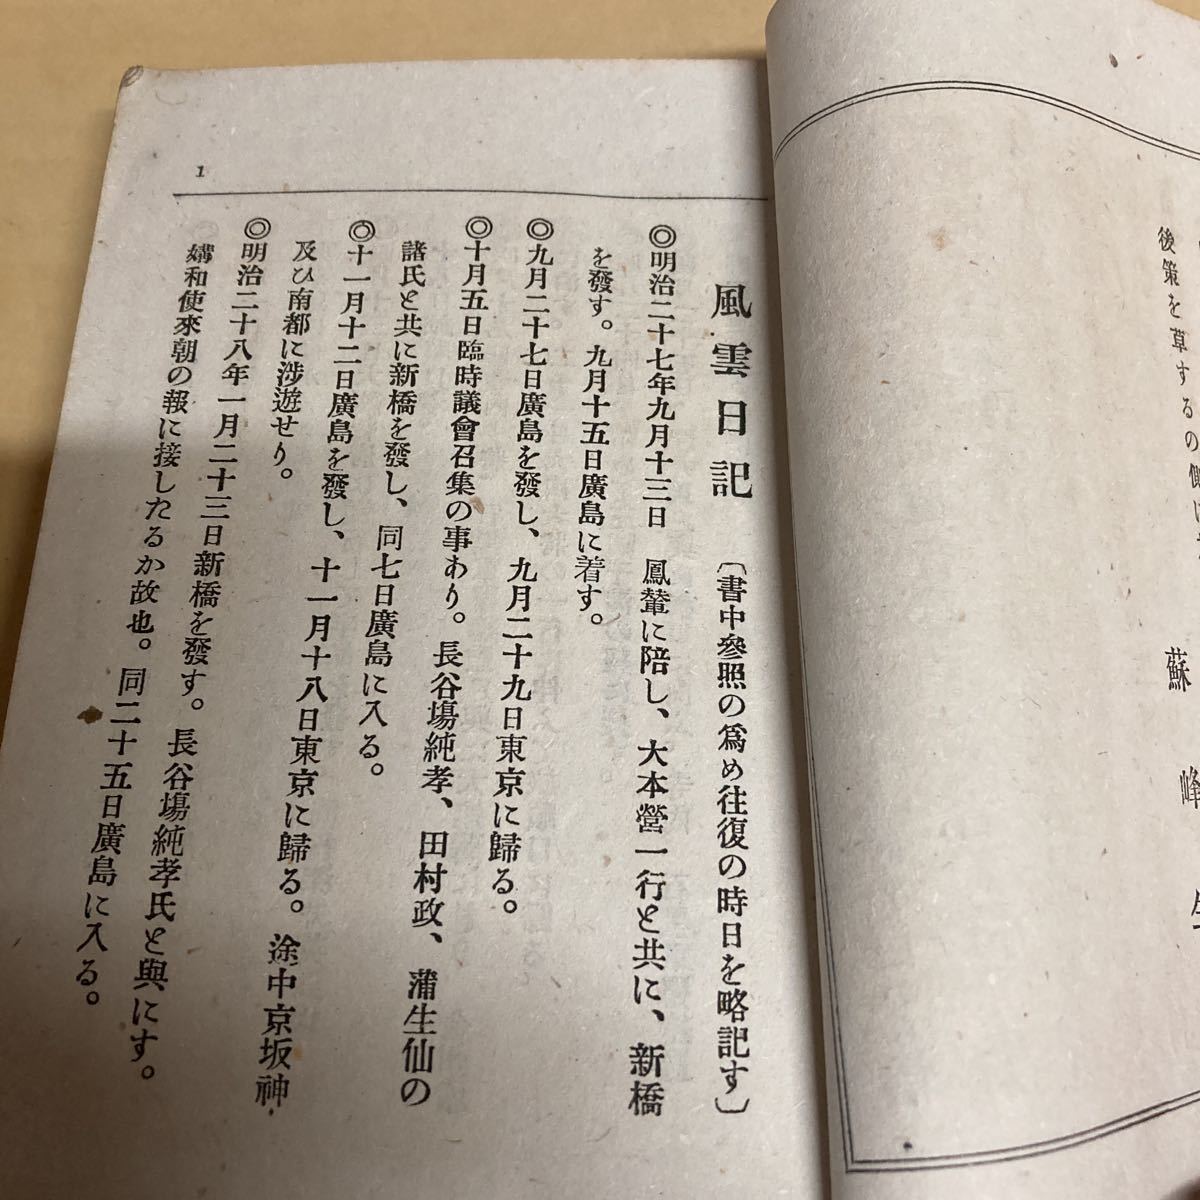 後策を草するの
蘇峰生
1
風雲日記 〔書中參照の爲め往復の時日を略記す〕
◎明治二十七年九月十三日 鳳輦に陪し、大本營一行と共に、新橋
を發す。九月十五日廣島に着す。
◎九月二十七日廣島を發し、九月二十九日東京に歸る。
◎十月五日臨時議會召集の事あり。長谷塲純孝、田村政、蒲生仙の
諸氏と共に新橋を發し、同七日廣島に入る。
◎十一月十二日廣島を發し、十一月十八日東京に歸る。途中京坂神
及ひ南都に涉遊せり。
◎明治二十八年一月二十三日新橋を發す。長谷塲純孝氏と與にす。
媾和使來朝の報に接したるか故也。同二十五日廣島に入る。